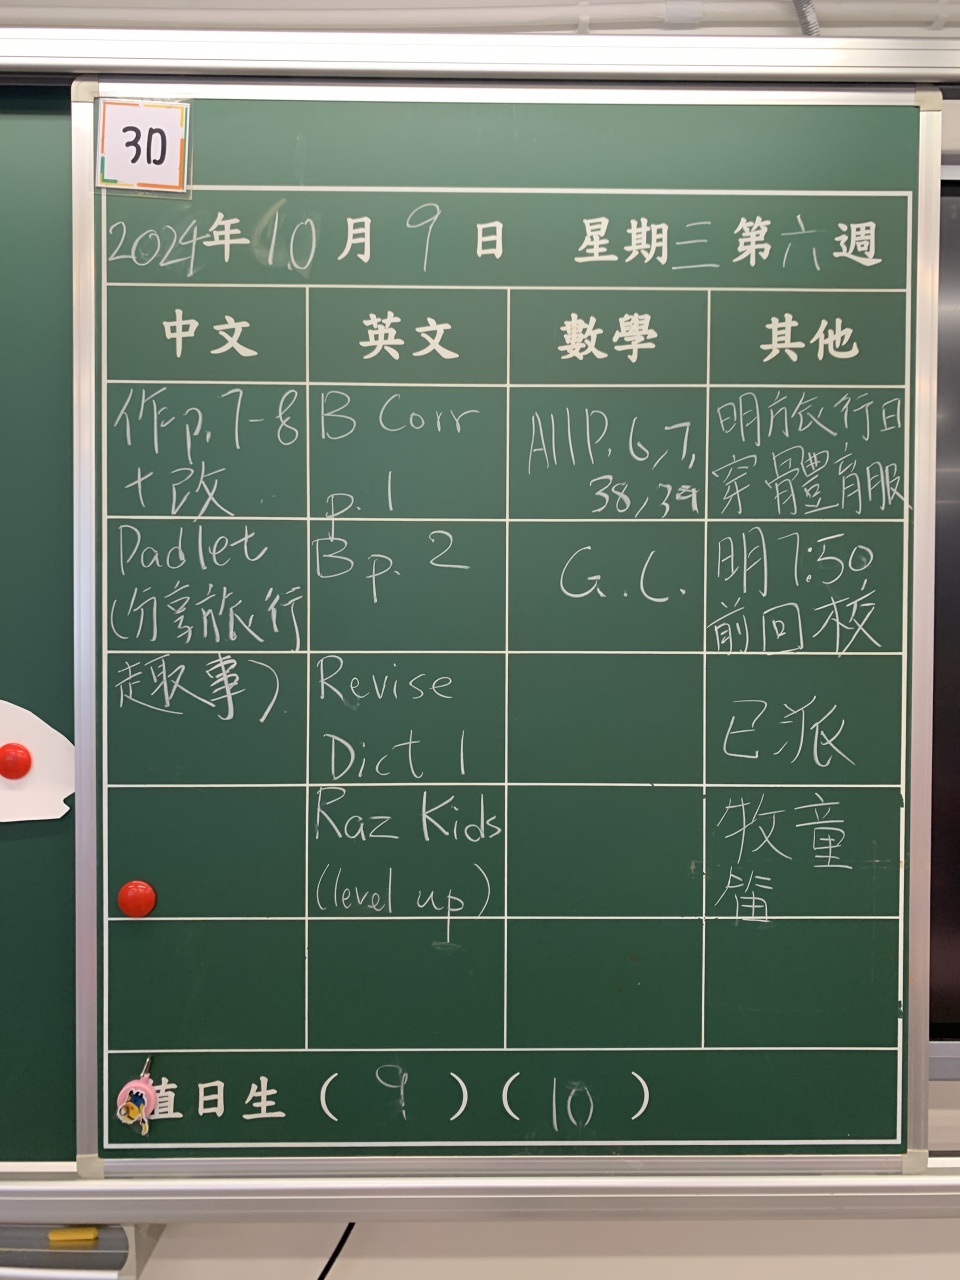 3D
2024年10月9日 星期三第六週
中文 英文 數學 其他
作p.7-8
+改
Padlet
(分享旅行
趣事)
B Corr
p.1
B p.2
Revise
Dict 1
Raz Kids
(level up)
A11P.6,7,
38,39
G.C.
明旅行日
穿體育服
明7:50
前回校
已派
牧童
笛
值日生(9)(10)